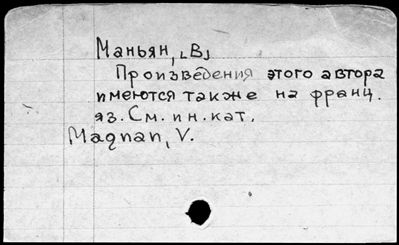 Маньян, ⌞В⌟
Произведения этого автора
имеются также на франц.
яз. См. ин. кат.
Magnan, V.